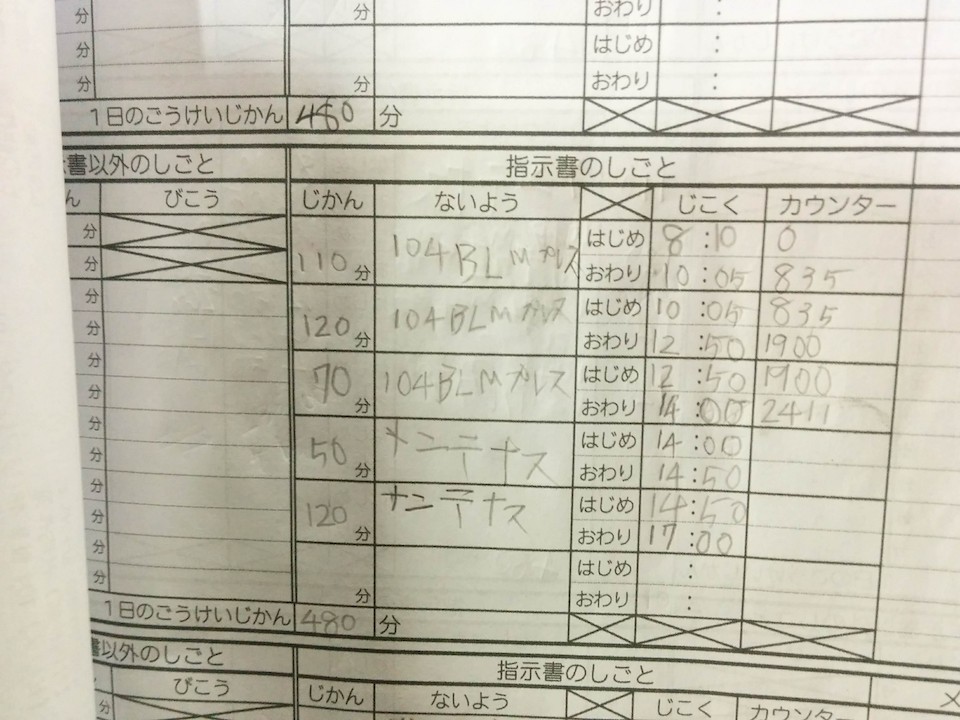 分 分 おわり :
分 はじめ :
分 分 おわり :
1日のごうけいじかん 480 分
書以外のしごと 指示書のしごと
ん びこう じかん ないよう じこく カウンター
分 110分 104BLMプレス はじめ 8:10 0
分 おわり 10:05 835
分 120分 104BLMプレス はじめ 10:05 835
分 おわり 12:50 1900
分 70分 104BLMプレス はじめ 12:50 1900
分 おわり 14:00 2411
分 50分 メンテナス はじめ 14:00
分 おわり 14:50
分 120分 メンテナス はじめ 14:50
分 おわり 17:00
分 はじめ :
分 分 おわり :
1日のごうけいじかん 480 分
書以外のしごと 指示書のしごと
びこう じかん ないよう じこく カウンター
分